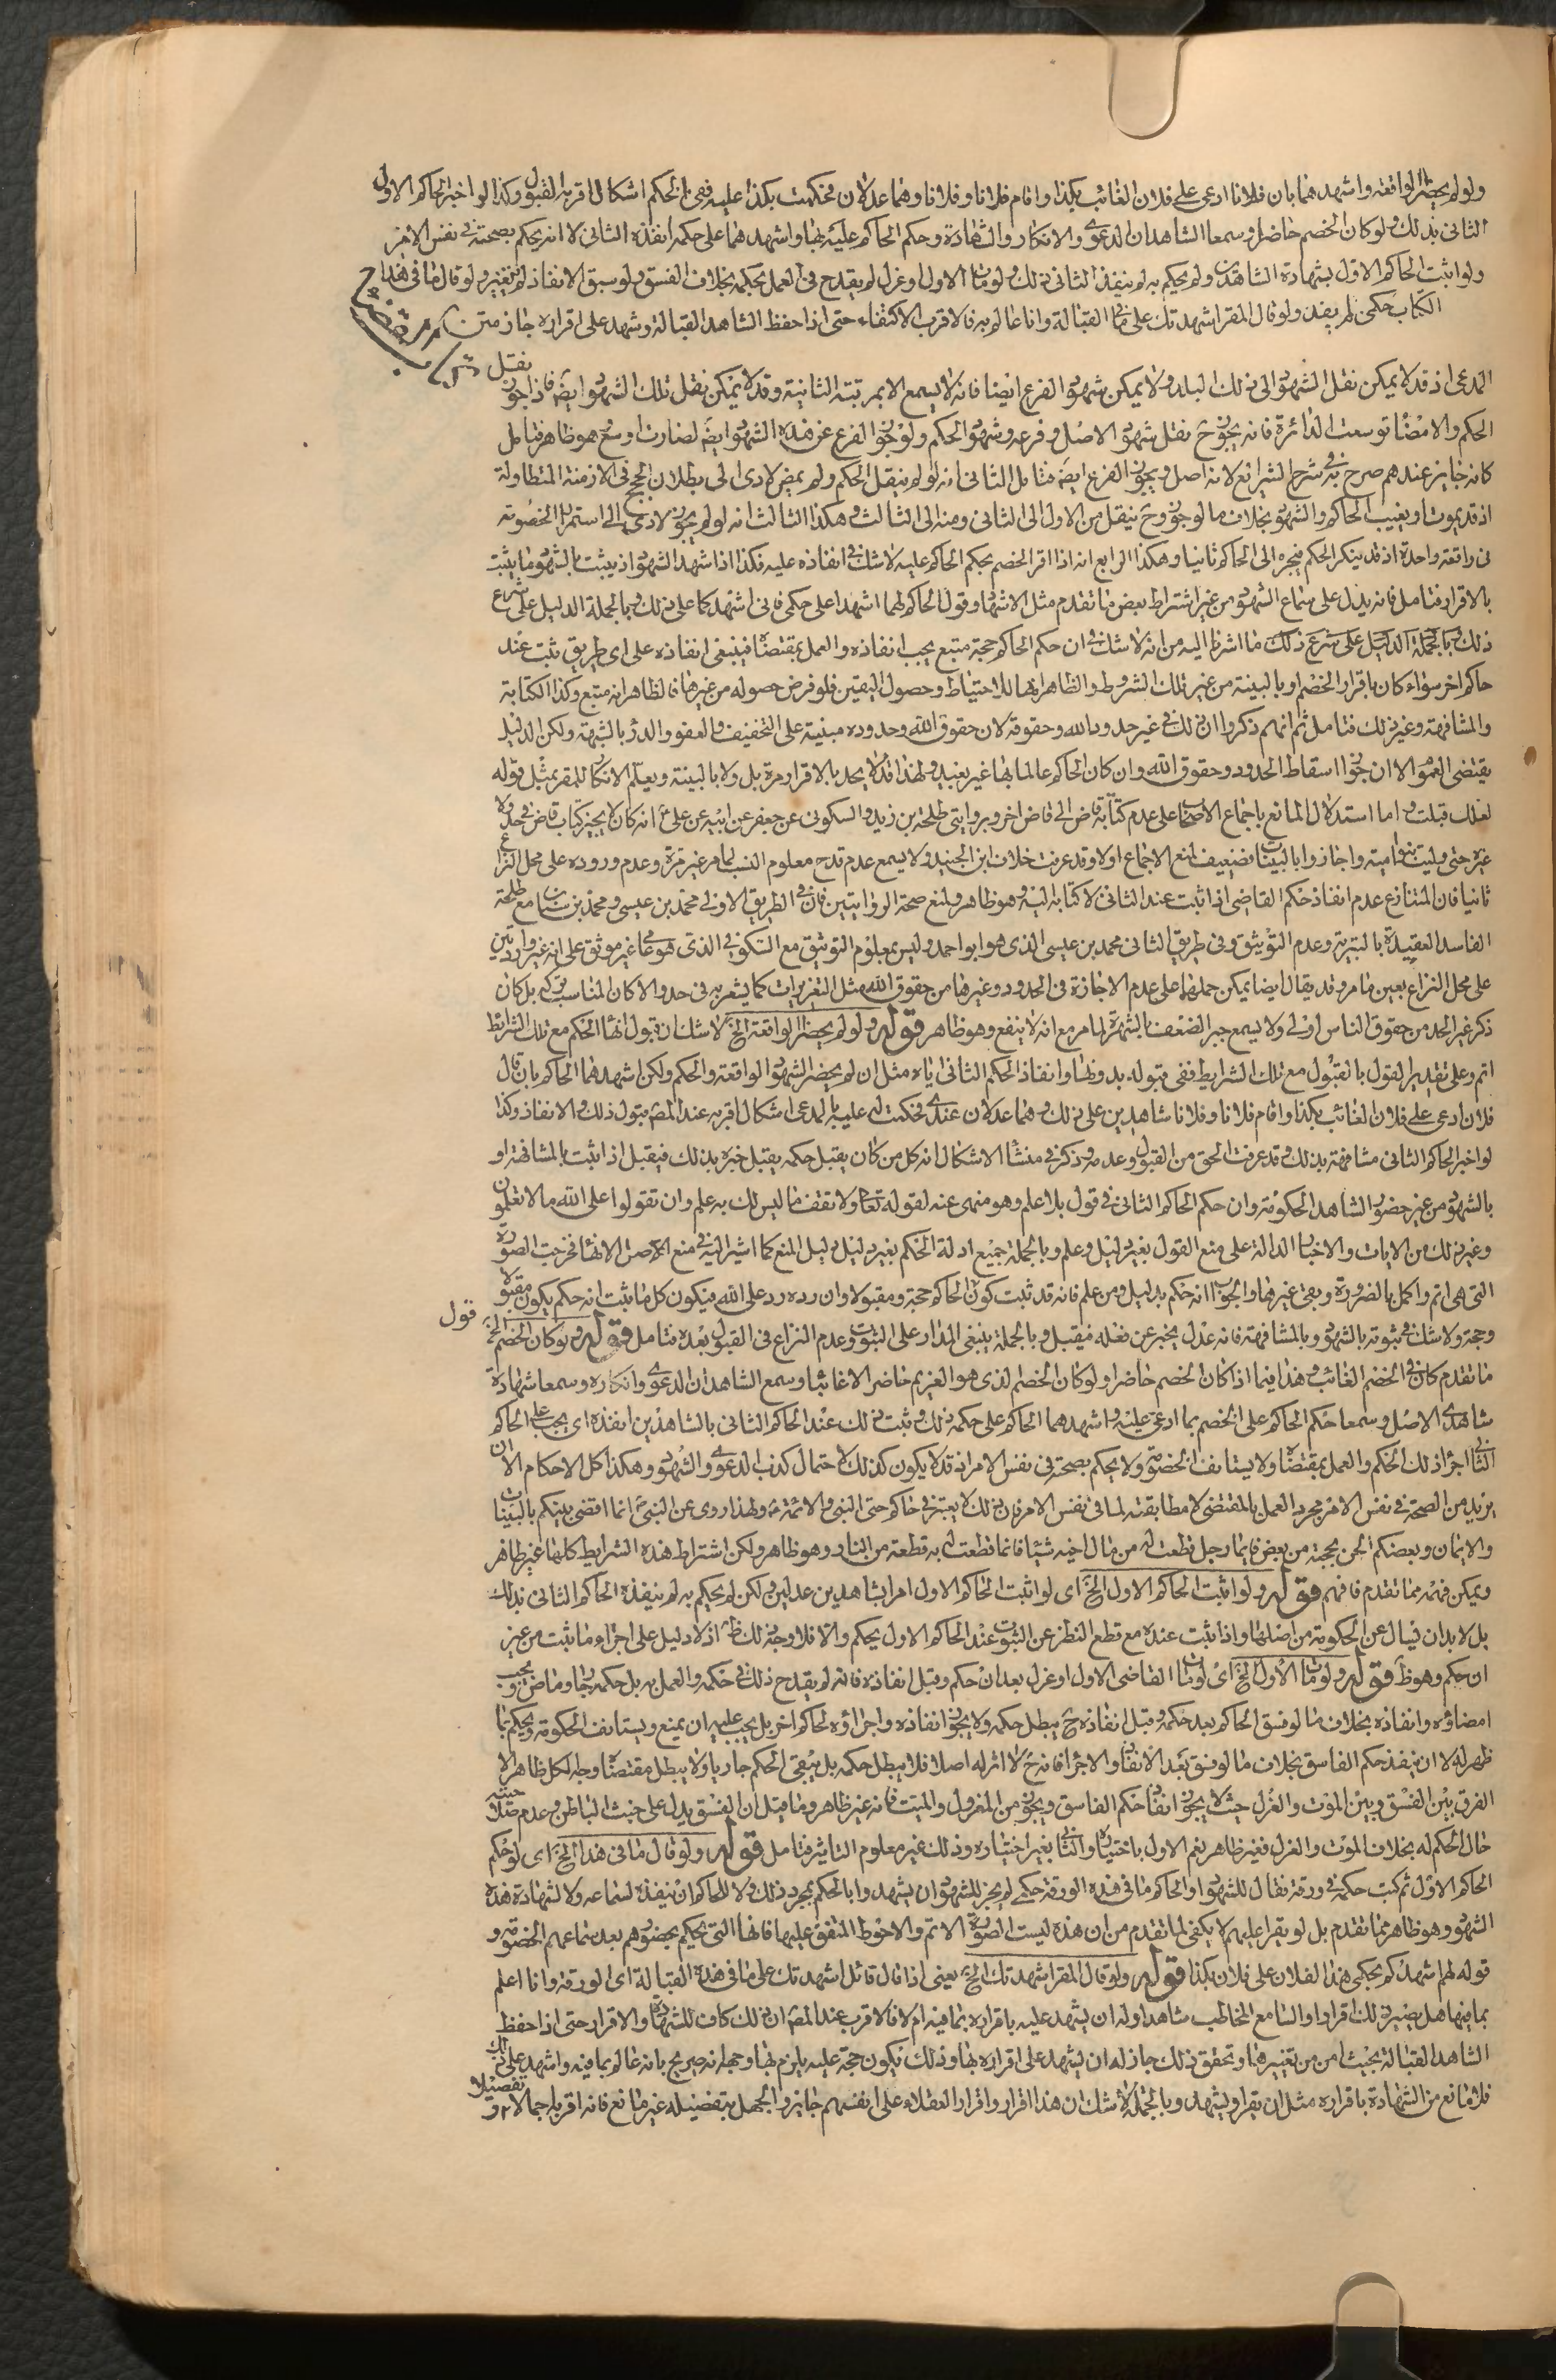 ولو لم يحضرا الواقعة واشهدهما بان فلانا ادعى على فلان الغائب بكذا واقام فلانا وفلانا وهما عدلان فحكمت بكذا عليه ففى الحكم اشكال اقربه القبول وكذا لو اخبر الحاكم الاول
الثانى بذلك ولو كان الخصم حاضرا وسمعا الشاهدان الدعوى والانكار والشهادة وحكم الحاكم عليه بها واشهدهما على حكمه انفذه الثانى لا انه يحكم بصحته فى نفس الامر
ولو اثبت الحاكم الاول بشهادة الشاهدين ولم يحكم به لم ينفذ الثانى ذلك ولو مات الاول او عزل لم يقدح فى العمل بحكمه بخلاف الفسق ولو سبق الانفاذ لم تغير ولو قال ما فى هذا
الكتاب حكمى لم يفد ولو قال المقر اشهدتك على ما فى القبالة وانا عالم به فالاقرب الاكتفاء حتى اذا حفظ الشاهد القبالة وشهد على اقراره جاز متن
نقل
المدعى اذ قد لا يمكن نقل الشهود الى ذلك البلد ولا يمكن شهود الفرع ايضا فانه لا يسمع الا بمرتبة الثانية وقد لا يمكن نقل تلك الشهود ايضَ فاذا جوز
الحكم والامضا توسعت الدائرة فانه يجوز ح نقل شهود الاصل وفرعه وشهود الحكم ولو جوز الفرع عن هذه الشهود ايضَ لصارت اوسع وهو ظاهر فتامل
كانه جايز عندهم صرح به فى شرح الشرايع لانه اصل ويجوز الفرع ايضَ فتامل الثانى انه لو لم ينقل الحكم ولم يمض لادى الى بطلان الحجج فى الازمنة المتطاولة
اذ قد يموت او يغيب الحاكم والشهود بخلاف ما لو جوز وح ينقل من الاول الى الثانى ومنه الى الثالث وهكذا الثالث انه لو لم يجوز لادى الى استمرار الخصومة
فى واقعة واحدة اذ قد ينكر الحكم فيجره الى الحاكم ثانيا وهكذا الرابع انه اذا اقر الخصم بحكم الحاكم عليه لا شك فى انفاذه عليه فكذا اذا شهد الشهود اذ يثبت بالشهود ما يثبت
بالاقرار فتامل فانه يدل على سماع الشهود من غير اشتراط بعض ما تقدم مثل الاشهاد وقول الحاكم لهما اشهدا على حكمى فانى اشهدكما على ذلك وبالجملة الدليل على شرع
ذلك وبالجملة الدليل على شرع ذلك ما اشرنا اليه من انه لا شك فى ان حكم الحاكم حجة متبع يجب انفاذه والعمل بمقتضاه فينبغى انفاذه على اى طريق ثبت عند
حاكم اخر سواء كان باقرار الخصم او بالبينة من غير تلك الشروط والظاهر انها للاحتياط وحصول اليقين فلو فرض حصوله من غيرها فالظاهر انه متبع وكذا الكتابة
والمشافهة وغير ذلك فتامل ثم انهم ذكروا ان ذلك فى غير حدود الله وحقوقه لان حقوق الله وحدوده مبنية على التخفيف والعفو والدرؤ بالشبهة ولكن الدليل
يقتضى العموم الا ان جوزوا اسقاط الحدود وحقوق الله وان كان الحاكم عالما بها غير بعيد ولهذا قد لا يحد بالاقرار مرة بل ولا بالبينة ويعلم الانكار للمقر بمثل قوله
لعلك قبلت واما استدلال المانع باجماع الاصحاب على عدم كتابة قاض الى قاض اخر وبروايتى طلحة بن زيد والسكونى عن جعفر عن ابيه عن على ع انه كان لا يجيز كتاب قاض فى حد ولا
غيره حتى وليت بنو امية واجازوا بالبينات فضعيف لمنع الاجماع اولا وقد عرفت خلاف ابن الجنيد ولا يسمع عدم قدح معلوم النسب لما مر غير مرة وعدم وروده على محل النزاع
ثانيا فان المتنازع عدم انفاذ حكم القاضى اذا ثبت عند الثانى لا كتابه اليه وهو ظاهر ولمنع صحة الروايتين فان فى الطريق الاولى محمد بن عيسى ومحمد بن سنان مع طلحة
الفاسد العقيدة بالبترية وعدم التوثيق وفى طريق الثانى محمد بن عيسى الذى هو ابو احمد وليس بمعلوم التوثيق مع السكونى الذى هو عامى غير موثق على انه غير واردتين
على محل النزاع بعين ما مر وقد يقال ايضا يمكن حملها على عدم الاجازة فى الحدود وغيرها من حقوق الله مثل التعزيرات كما يشعر به فى حد والا كان المناسب تركه بل كان
ذكر غير الحد من حقوق الناس اولى ولا يسمع جبر الضعف بالشهرة لما مر مع انه لا ينفع وهو ظاهر قوله ولو لم يحضرا الواقعة الخ لا شك ان قبول انها الحكم مع تلك الشرايط
اتم وعلى تقدير القول بالقبول مع تلك الشرايط ففى قبوله بدونها وانفاذ الحكم الثانى اياه مثل ان لم يحضر الشهود الواقعة والحكم ولكن اشهدهما الحاكم بان قال
فلان ادعى على فلان الغائب بكذا واقام فلانا وفلانا شاهدين على ذلك وهما عدلان عندى فحكمت له عليه بالمدعى اشكال اقربه عند المصَ قبول ذلك والانفاذ وكذا
لو اخبر الحاكم الثانى مشافهة بذلك وقد عرفت الحق من القبول وعدمه وذكر فى منشأ الاشكال انه كل من كان يقبل حكمه يقبل خبره بذلك فيقبل اذا ثبت بالمشافهة او
بالشهود من غير حضور الشاهد الحكومة وان حكم الحاكم الثانى فى قول بلا علم وهو منهى عنه لقوله تعالى ولا تقف ما ليس لك به علم وان تقولوا على الله ما لا تعلمون
وغير ذلك من الايات والاخبار الدالة على منع القول بغير دليل وعلم وبالجملة جميع ادلة الحكم بغير دليل دليل المنع كما اشير اليه فى منع الاصل الانها فخرجت الصورة
التى هى اتم واكمل بالضرورة وبقى غيرها والجواب انه حكم بدليل ومن علم فانه قد ثبت كون الحاكم حجة ومقبولا وان رده رد على الله فيكون كل ما ثبت انه حكم يكون مقبولا
قول
وحجة ولا شك فى ثبوته بالشهود وبالمشافهة فانه عدل يخبر عن فعله فيقبل وبالجملة ينبغى المدار على الثبوت وعدم النزاع فى القبول بعده فتامل قوله ولو كان الخصم الخ
ما تقدم كان فى الخصم الغائب وهذا فيما اذا كان الخصم حاضرا ولو كان الخصم الذى هو الغريم حاضر الا غائبا وسمع الشاهدان الدعوى وانكاره وسمعا شهادة
شاهدى الاصل وسمعا حكم الحاكم على الخصم بما ادعى عليه واشهدهما الحاكم على حكمه ذلك وثبت ذلك عند الحاكم الثانى بالشاهدين انفذه اى يجب على الحاكم
الثانى اجراء ذلك الحكم والعمل بمقتضاه ولا يستانف الخصومة ولا يحكم بصحته فى نفس الامر اذ قد لا يكون كذلك لاحتمال كذب الدعوى والشهود وهكذا كل الاحكام الا ان
يريد من الصحة فى نفس الامر مجرد العمل بالمقتضى لا مطابقته لما فى نفس الامر فان ذلك لا يعتبر فى حاكم حتى النبى والائمة ع ولهذا روى عن النبى ص انما اقضى بينكم بالبينات
والايمان وبعضكم الحن بحجته من بعض فايما رجل قطعت له من مال اخيه شيئا فانما قطعت له به قطعة من النار وهو ظاهر ولكن اشتراط هذه الشرايط كلها غير ظاهر
ويمكن فهمه مما تقدم فافهم قوله ولو اثبت الحاكم الاول الخ اى لو اثبت الحاكم الاول امرا بشاهدين عدلين ولكن لم يحكم به لم ينفذه الحاكم الثانى بذلك
بل لا بد ان يسال عن الحكومة من اصلها واذا ثبت عنده مع قطع النظر عن الثبوت عند الحاكم الاول يحكم والا فلا وجه ذلك ظَ اذ لا دليل على اجراء ما ثبت من غير
ان حكم وهو ظَ قوله ولو مات الاول الخ اى لو مات القاضى الاول او عزل بعد ان حكم وقبل انفاذه فانه لم يقدح ذلك فى حكمه والعمل به بل حكمه جار وماض ويجب
امضاؤه وانفاذه بخلاف ما لو فسق الحاكم بعد حكمه وقبل انفاذه ح يبطل حكمه ولا يجوز انفاذه واجراؤه لحاكم اخر بل يجب عليه ان يمنع ويستانف الحكومة ويحكم بما
ظهر له لا ان ينفذ حكم الفاسق بخلاف ما لو فسق بعد الانفاذ والاجراء فانه ح لا اثر له اصلا فلا يبطل حكمه بل يبقى الحكم جاريا ولا يبطل مقتضاه وجه لكل ظاهر الا
الفرق بين الفسق وبين الموت والعزل حيث لا يجوز انفاذ حكم الفاسق ويجوز من المعزول والميت فانه غير ظاهر وما قيل ان الفسق يدل على خبث الباطن وعدم صلاحيته
حال الحكم له بخلاف الموت والعزل فغير ظاهر نعم الاول باختياره والثانى بغير اختياره وذلك غير معلوم التاثير فتامل قوله ولو قال ما فى هذا الخ اى لو حكم
الحاكم الاول ثم كتب حكمه فى ورقة فقال للشهود او الحاكم ما فى هذه الورقة حكمى لم يجز للشهود ان يشهدوا بالحكم بمجرد ذلك ولا للحاكم ان ينفذه لسماعه ولا لشهادة هذه
الشهود وهو ظاهر مما تقدم بل لو يقرا عليهم لا يكفى لما تقدم من ان هذه ليست الصورة الاتم والاحوط المتفق عليها فانها التى يحكم بحضورهم بعد سماعهم الخصومة و
قوله لهم اشهدكم بحكمى هذا الفلان على فلان بكذا قوله ولو قال المقر اشهدتك الخ يعنى اذا قال قائل اشهدتك على ما فى هذه القبالة اى الورقة وانا اعلم
بما فيها هل يصير ذلك اقرارا والسامع المخاطب شاهدا وله ان يشهد عليه باقراره بما فيه ام لا فالاقرب عند المصَ ان ذلك كاف للشهادة والاقرار حتى اذا حفظ
الشاهد القبالة بحيث امن من تغييرها وتحقق ذلك جاز له ان يشهد على اقراره بها وذلك يكون حجة عليه يلزم بها وجهه انه صريح بانه عالم بما فيه واشهد على ذلك
فلا مانع من الشهادة باقراره مثل ان يقرا ويشهد وبالجملة لا شك ان هذا اقرار واقرار العقلاء على انفسهم جايز والجهل بتفصيله غير مانع فانه اقر به اجمالا و تفصيلا